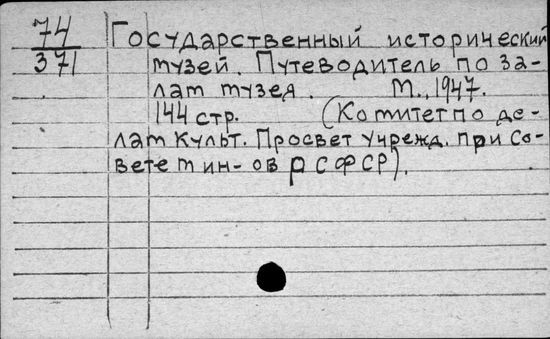 74
371
Государственный исторический
музей. Путеводитель по за-
лам музея. М., 1947.
144 стр. (Комитет по де-
лам Культ. Просвет Учрежд. При Со-
вете мин-ов РСФСР).